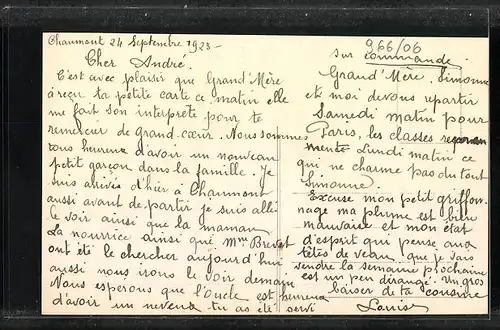 Chaumont 24 Septembre 1923 -
Cher André.
C'est avec plaisir que Grand'Mère
a reçu ta petite carte ce matin elle
me fait son interprète pour te
remercier de grand cœur. Nous sommes
tous heureux d'avoir un nouveau
petit garçon dans la famille. Je
suis arrivée d'hier à Chaumont
aussi avant de partir je suis allée
le voir ainsi que la maman
La nourrice ainsi que Mme
ont été le chercher aujourd'hui
aussi nous irons le voir demain
Nous esperons que l'oncle est heureux
d'avoir un neveu tu as été servi
966/06
sur commande.
Grand'Mère, Simonne
et moi devons repartir
Samedi matin pour
Paris, les classes recom
mente Lundi matin ce
qui ne charme pas du tout
Simonne.
Excuse mon petit griffon-
nage ma plume est bien
mauvaise et mon état
d'esprit qui pense aux
têtes de veau que je vais
vendre la semaine prochaine
est un peu dérangé. Un gros
baiser de ta cousine
Louise